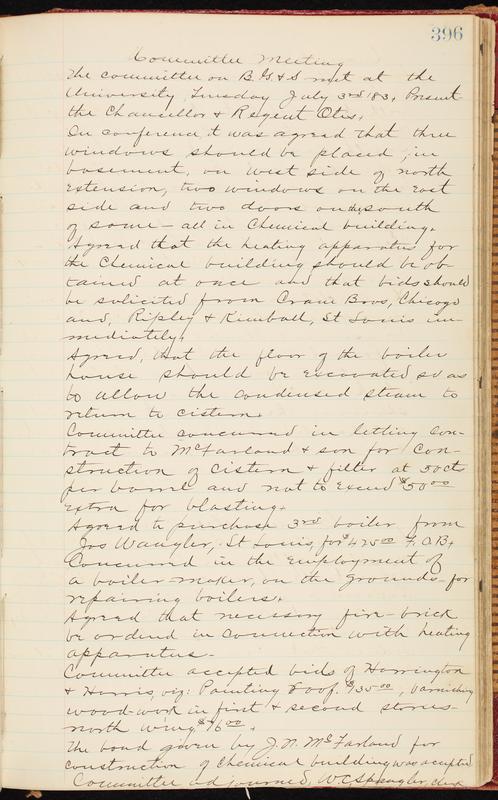 396
Committee Meeting
The committee on B. G & S met at the
University, Tuesday July 3rd 183, Present
the Chancellor & Regent Otis.
In conference it was agreed that three
windows should be placed, in
basement, on west side of north
extension, two windows on the east
side and two doors on the south
of same - all in Chemical building.
Agreed that the heating apparatus for
the Chemical building should be ob-
tained at once and that bids should
be solicited from Crane Bros, Chicago
and, Ripley & Kimball, St Louis im-
mediately.
Agreed, that the floor of the boiler
house should be excavated so as
to allow the condensed steam to
return to cistern.
Committee concurred in letting con-
tract to McFarland & son for con-
struction of cistern & filter at 50cts
per barrel and not to exceed $50 00
extra for blasting.
Agreed to purchase 3rd boiler from
Jos Wangler, St Louis, for $475 00 F.O.B.
Concurred in the employment of
a boiler-maker, on the grounds - for
repairing boilers.
Agreed that necessary fire-brick
be ordered in connection with heating
apparatus -
Committee accepted bids of Harrington
& Harris, viz: Painting roof $35 00, varnishing
wood-work in first & second stories -
north wing $76 00.
The bond given by J. N. McFarland for
construction of chemical building was accepted
Committee adjourned, W. C. Spangler, clerk